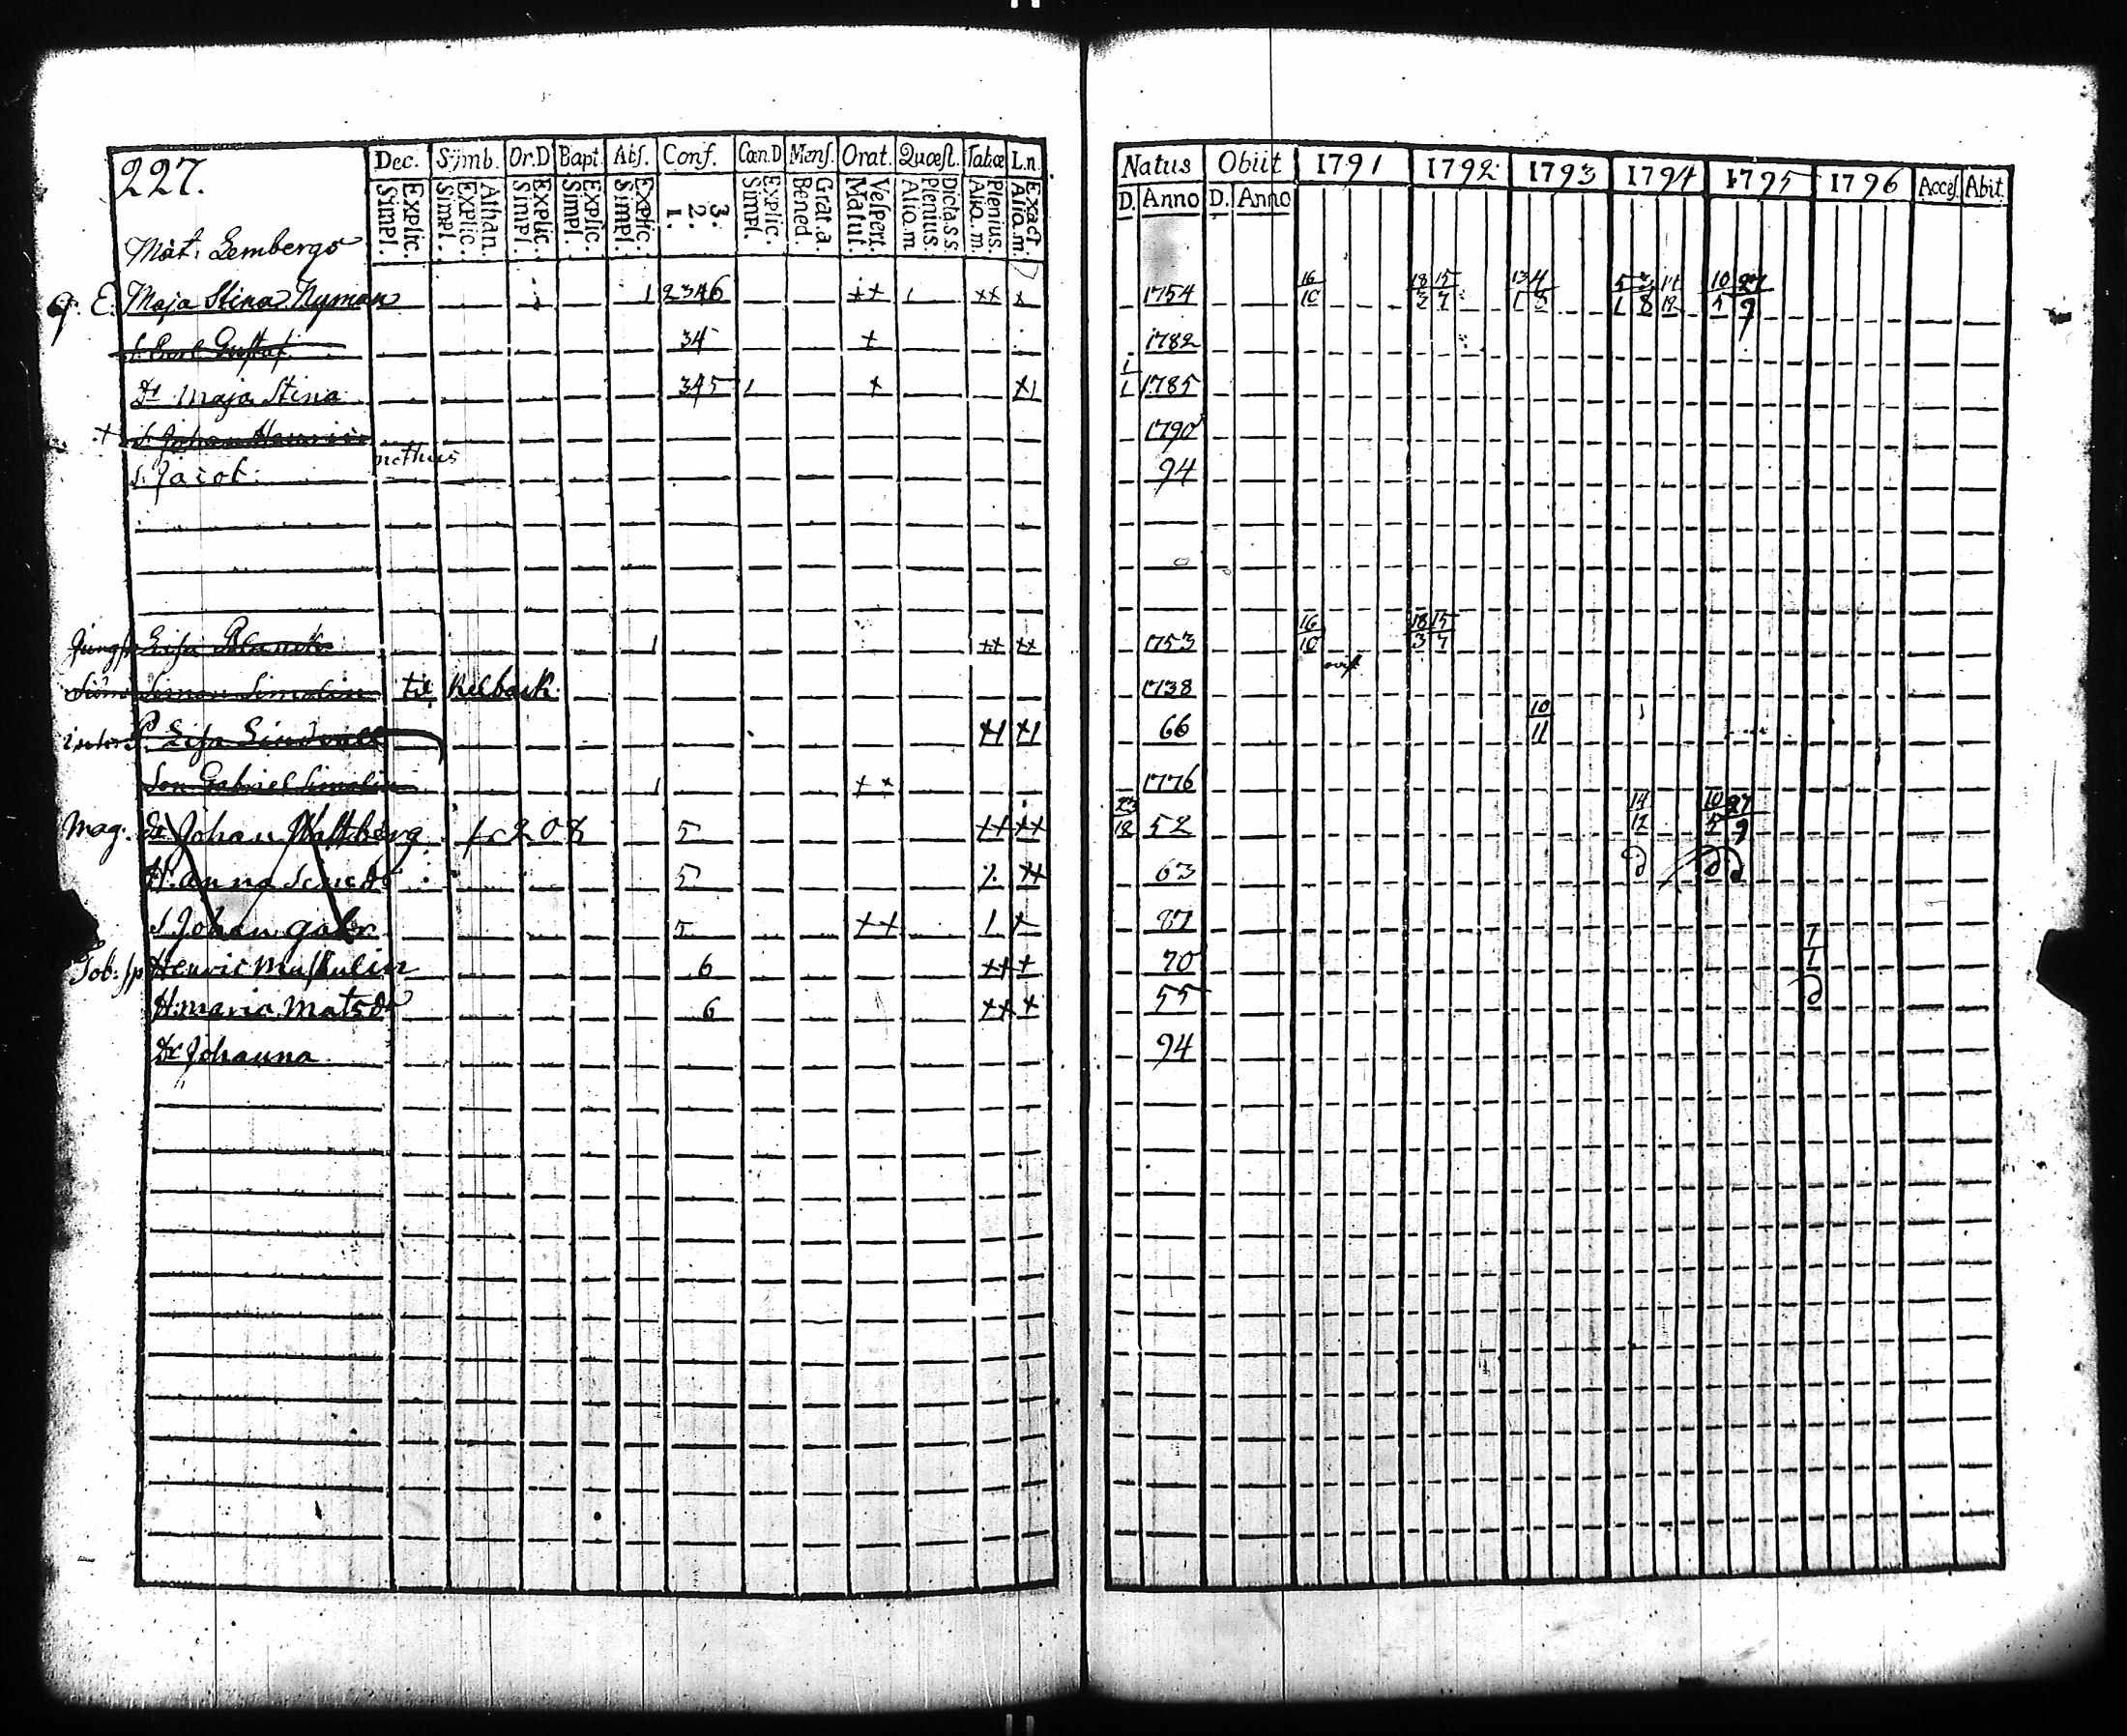 227.
Dec. Symb. Or.D Bapt. Abs. Conf. Cœn.D Mens. Orat. Quæst. Tabæ L.n.
Explic. Simpl. Athan. Explic. Simpl. Explic. Simpl. Explic. Simpl. Explic. Simpl. 3. 2. 1. Explic. Simpl. Grat.a. Bened. Vespert. Matut. Dicta.s.s. Plenius. Aliq.m. Plenius. Aliq.m. Exact Aliq.m.
Natus Obiit 1791 1792 1793 1794 1795 1796 Acces. Abit.
D. Anno D. Anno
Mat. Lembergs
E. Maja Stina Nyman 1 2346 ++ 1 ++ + 1754 16/10 18/3 15/7 13/1 4/3 5/1 3/8 14/12 10/5 27/9
S. Carl Gustaf 34 + 1782
Dr Maja Stina 345 1 + +1 1/1 1785
+ S. Johan Henric 1790
S. Jacob nothus 94
Jungfr Lisa Planck 1 ++ ++ 1753 16/10 18/3 15/7
Simon Simolin til Kelback 1738
P. Lisa Lindvall +1 +1 66 10/11
Son Gabriel Simolin 1 ++ 1776
Mag. Johan Wallberg fc 208 5 ++ ++ 23/18 52 14/12 10/5 27/9
H. Anna 5 ++ 63
S. Johan Gabr. 5 ++ 1 + 87
Tob: sp Henric Muskulin 6 ++ + 70 1/1
H. Maria Matsdr 6 ++ + 55
Dr Johanna 94